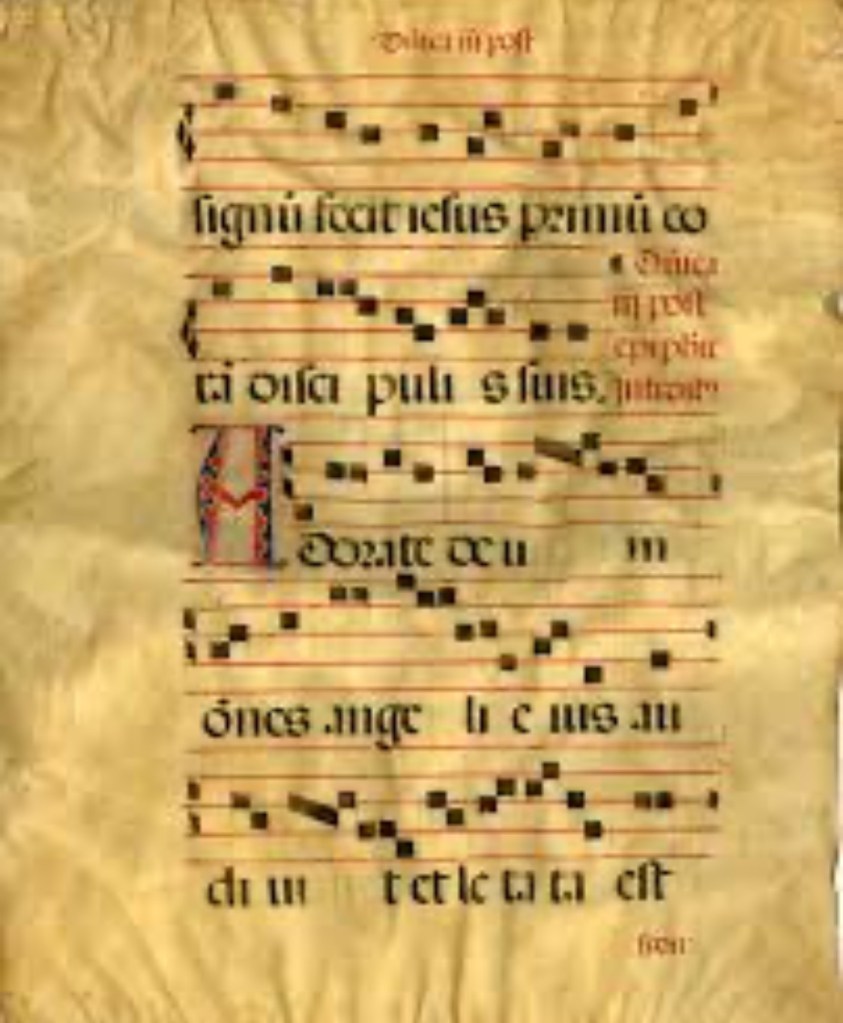 Dñica iii post
signū fecit iesus primū co
rā disci puli s suis.
Dñica
iii post
epiphie
Introit9
Adorate deu m
ōnes ange li e ius au
di ui t et le ta ta est